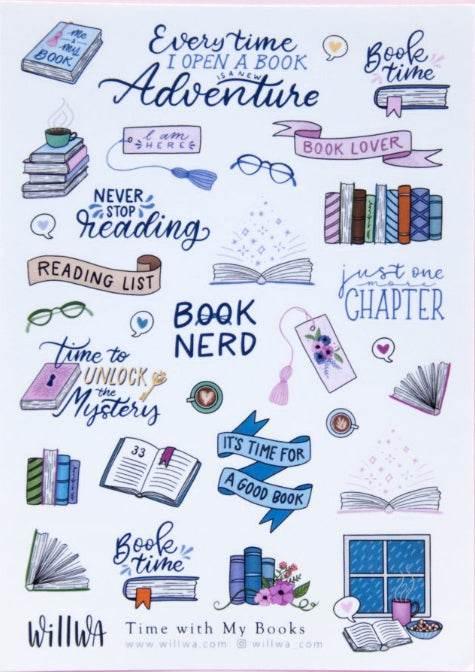 me
&
my
BOOK
Every time
I OPEN A BOOK
IS A NEW
Adventure
Book
time
I am
HERE
BOOK LOVER
NEVER
STOP
reading
READING LIST
just one
more
CHAPTER
BOOK
NERD
time to
UNLOCK
the
Mystery
33
IT'S TIME FOR
A GOOD BOOK
Book
time
WillWA
Time with My Books
www.willwa.com willwa_com